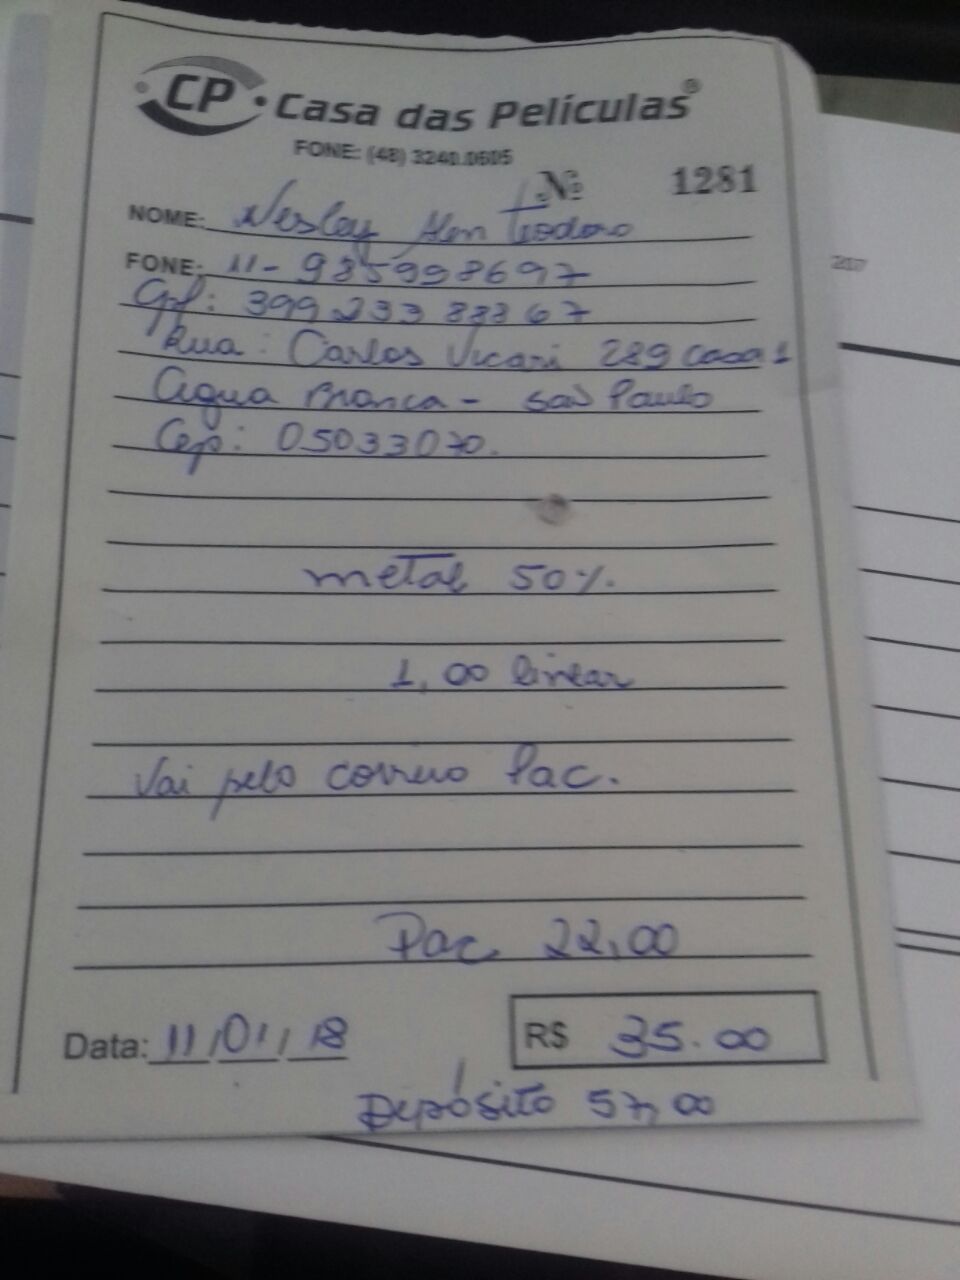 CP Casa das Películas®
FONE: (48) 3240.0605
Nº 1281
NOME: Wesley Teodoro
FONE: 11-985998697
Cpf: 399 233 888 67
Rua: Carlos Vicari 289 casa 1
Agua Branca - São Paulo
Cep: 05033070.
metal 50%.
1,00 linear
Vai pelo correio Pac.
Pac 22,00
Data: 11/01/18
R$ 35.00
Depósito 57,00